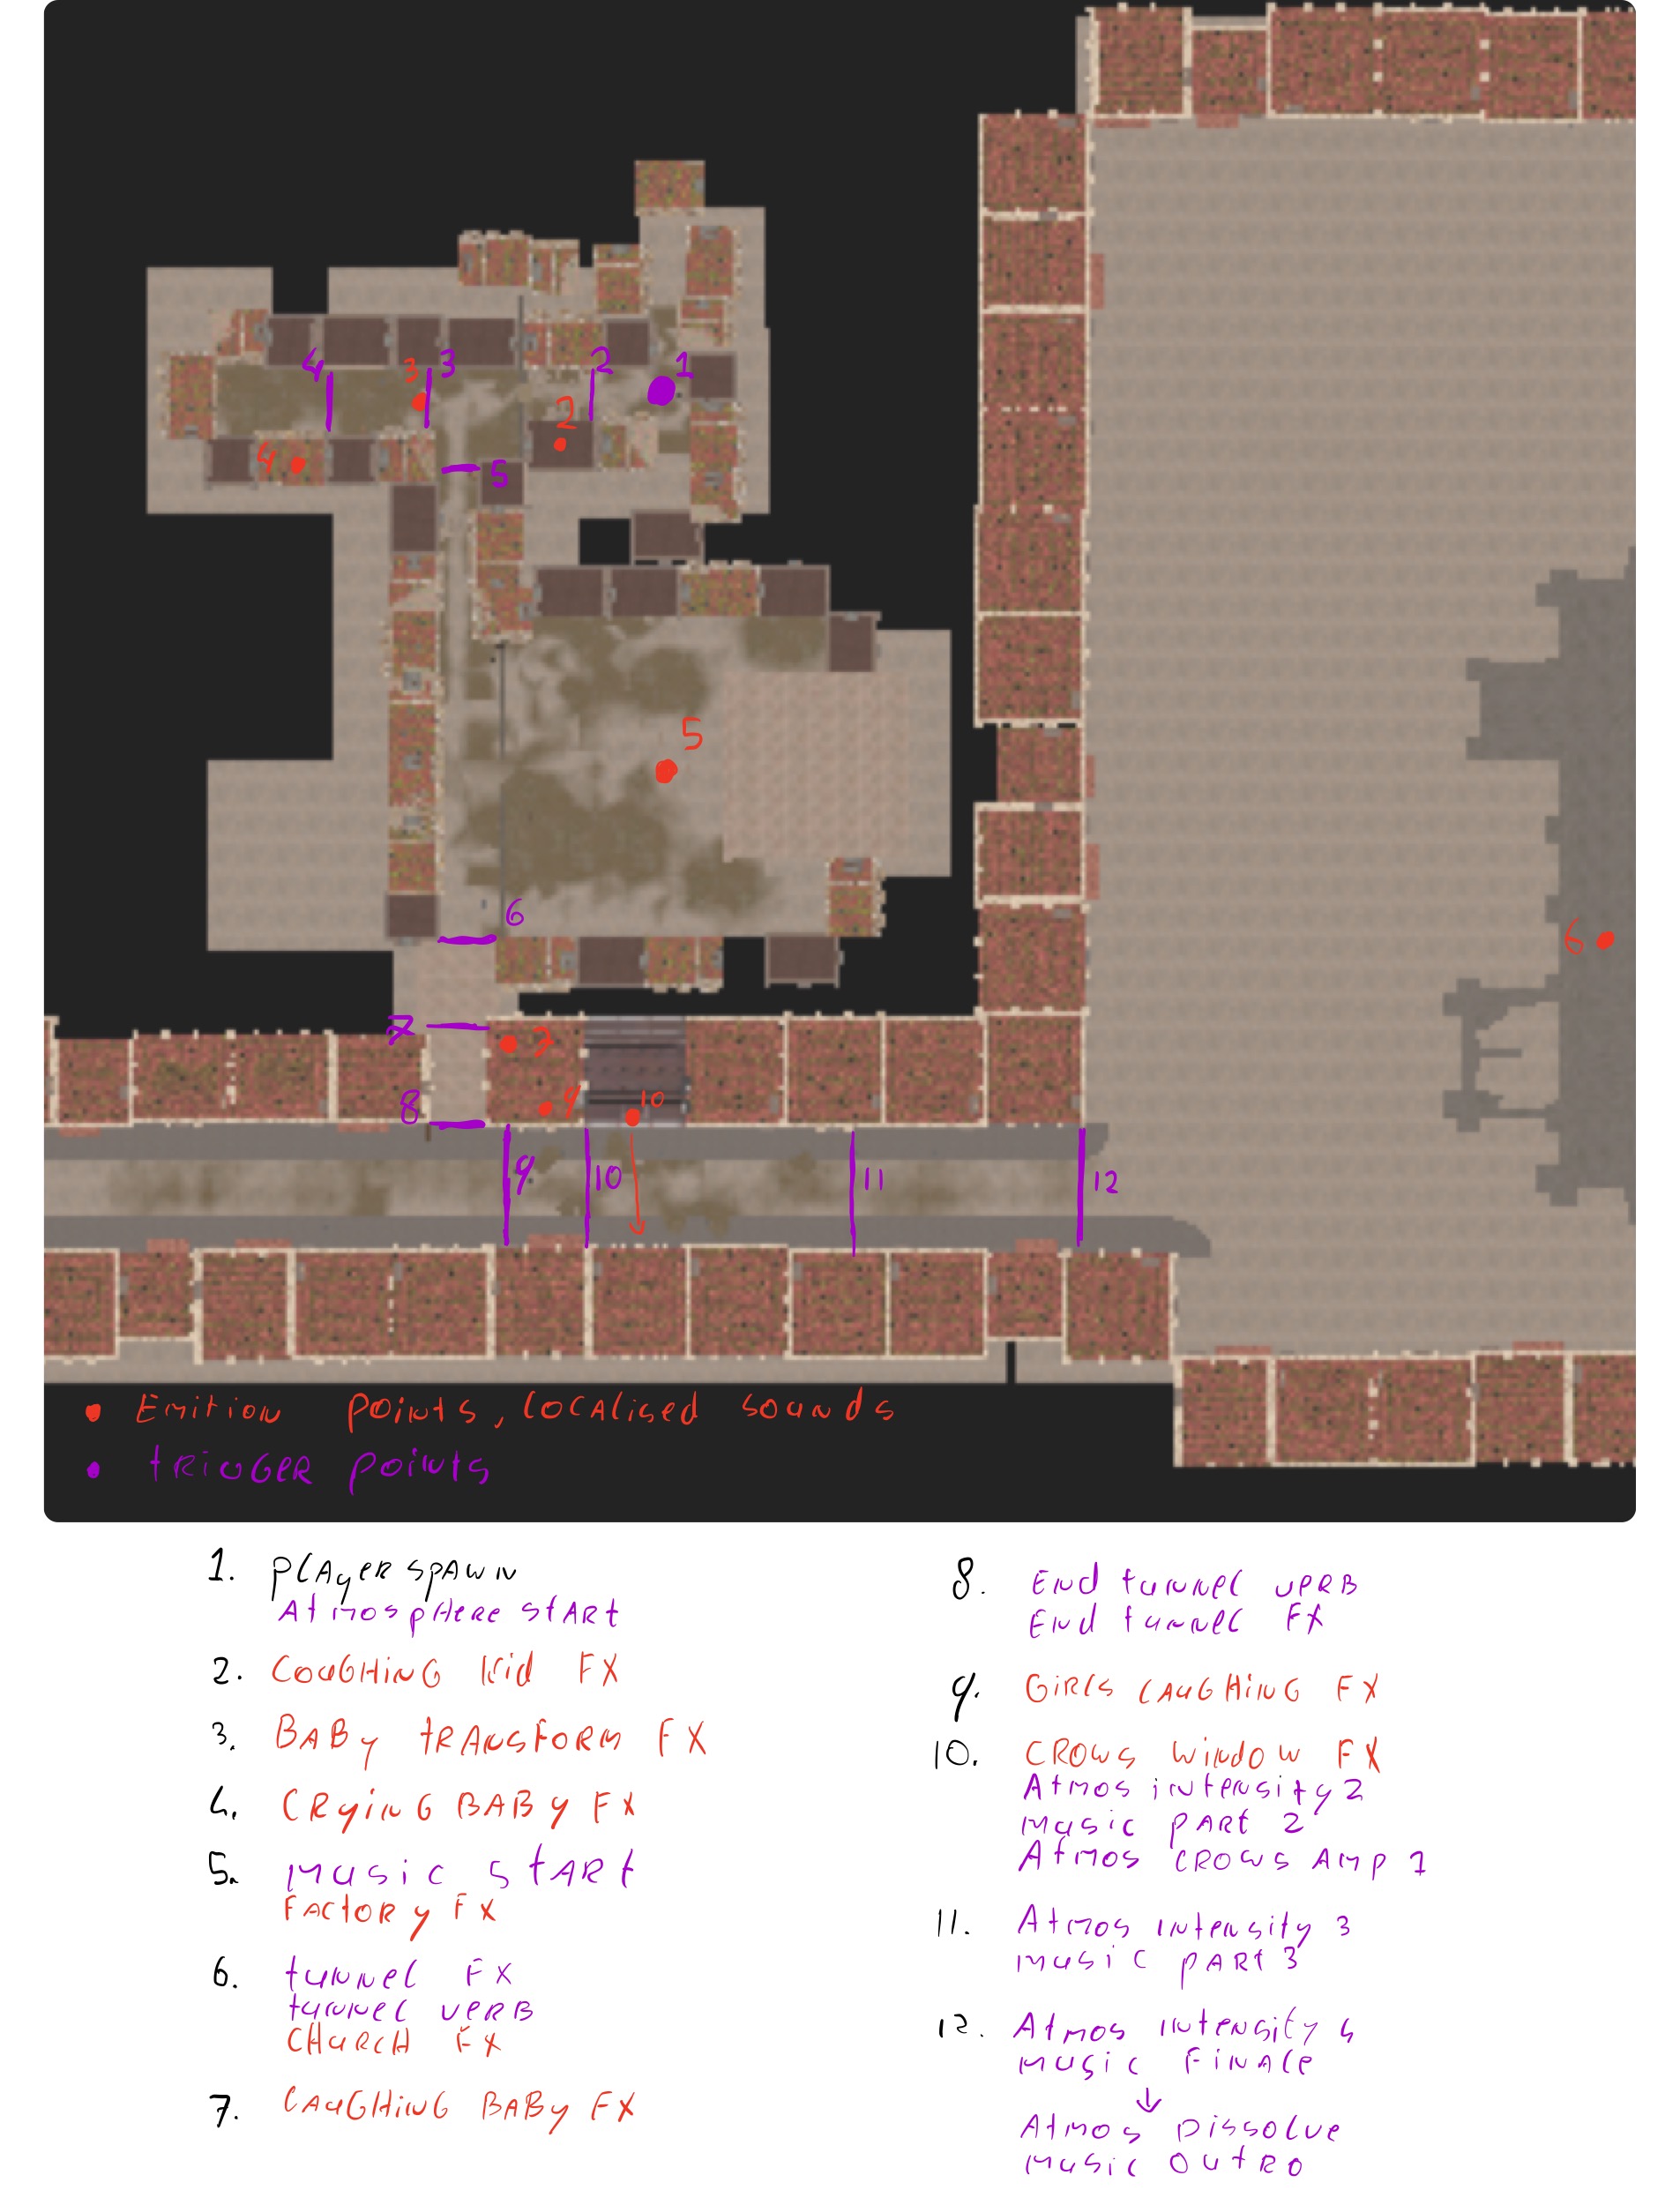 4
3
3
2
1
2
4
5
5
6
6
7
7
8
9
10
9
10
11
12
Emition points, localised sounds
trigger points
1. player spawn
Atmosphere start
2. Coughing kid FX
3. Baby transform FX
4. Crying baby FX
5. music start
Factory FX
6. tunnel FX
tunnel verb
Church FX
7. Laughing baby FX
8. End tunnel verb
End tunnel FX
9. Girls laughing FX
10. Crows window FX
Atmos intensity 2
music part 2
Atmos crows amp 1
11. Atmos intensity 3
music part 3
12. Atmos intensity 4
music finale
↓
Atmos dissolve
music outro